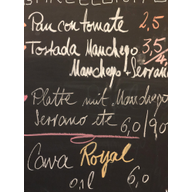 • Pan con tomate 2,5
• Tostada Manchego 3,5
Manchego + Serrano
• Platte mit Manchego
Serrano etc 6,0/9,0
Cava Royal
0,1l 6,0